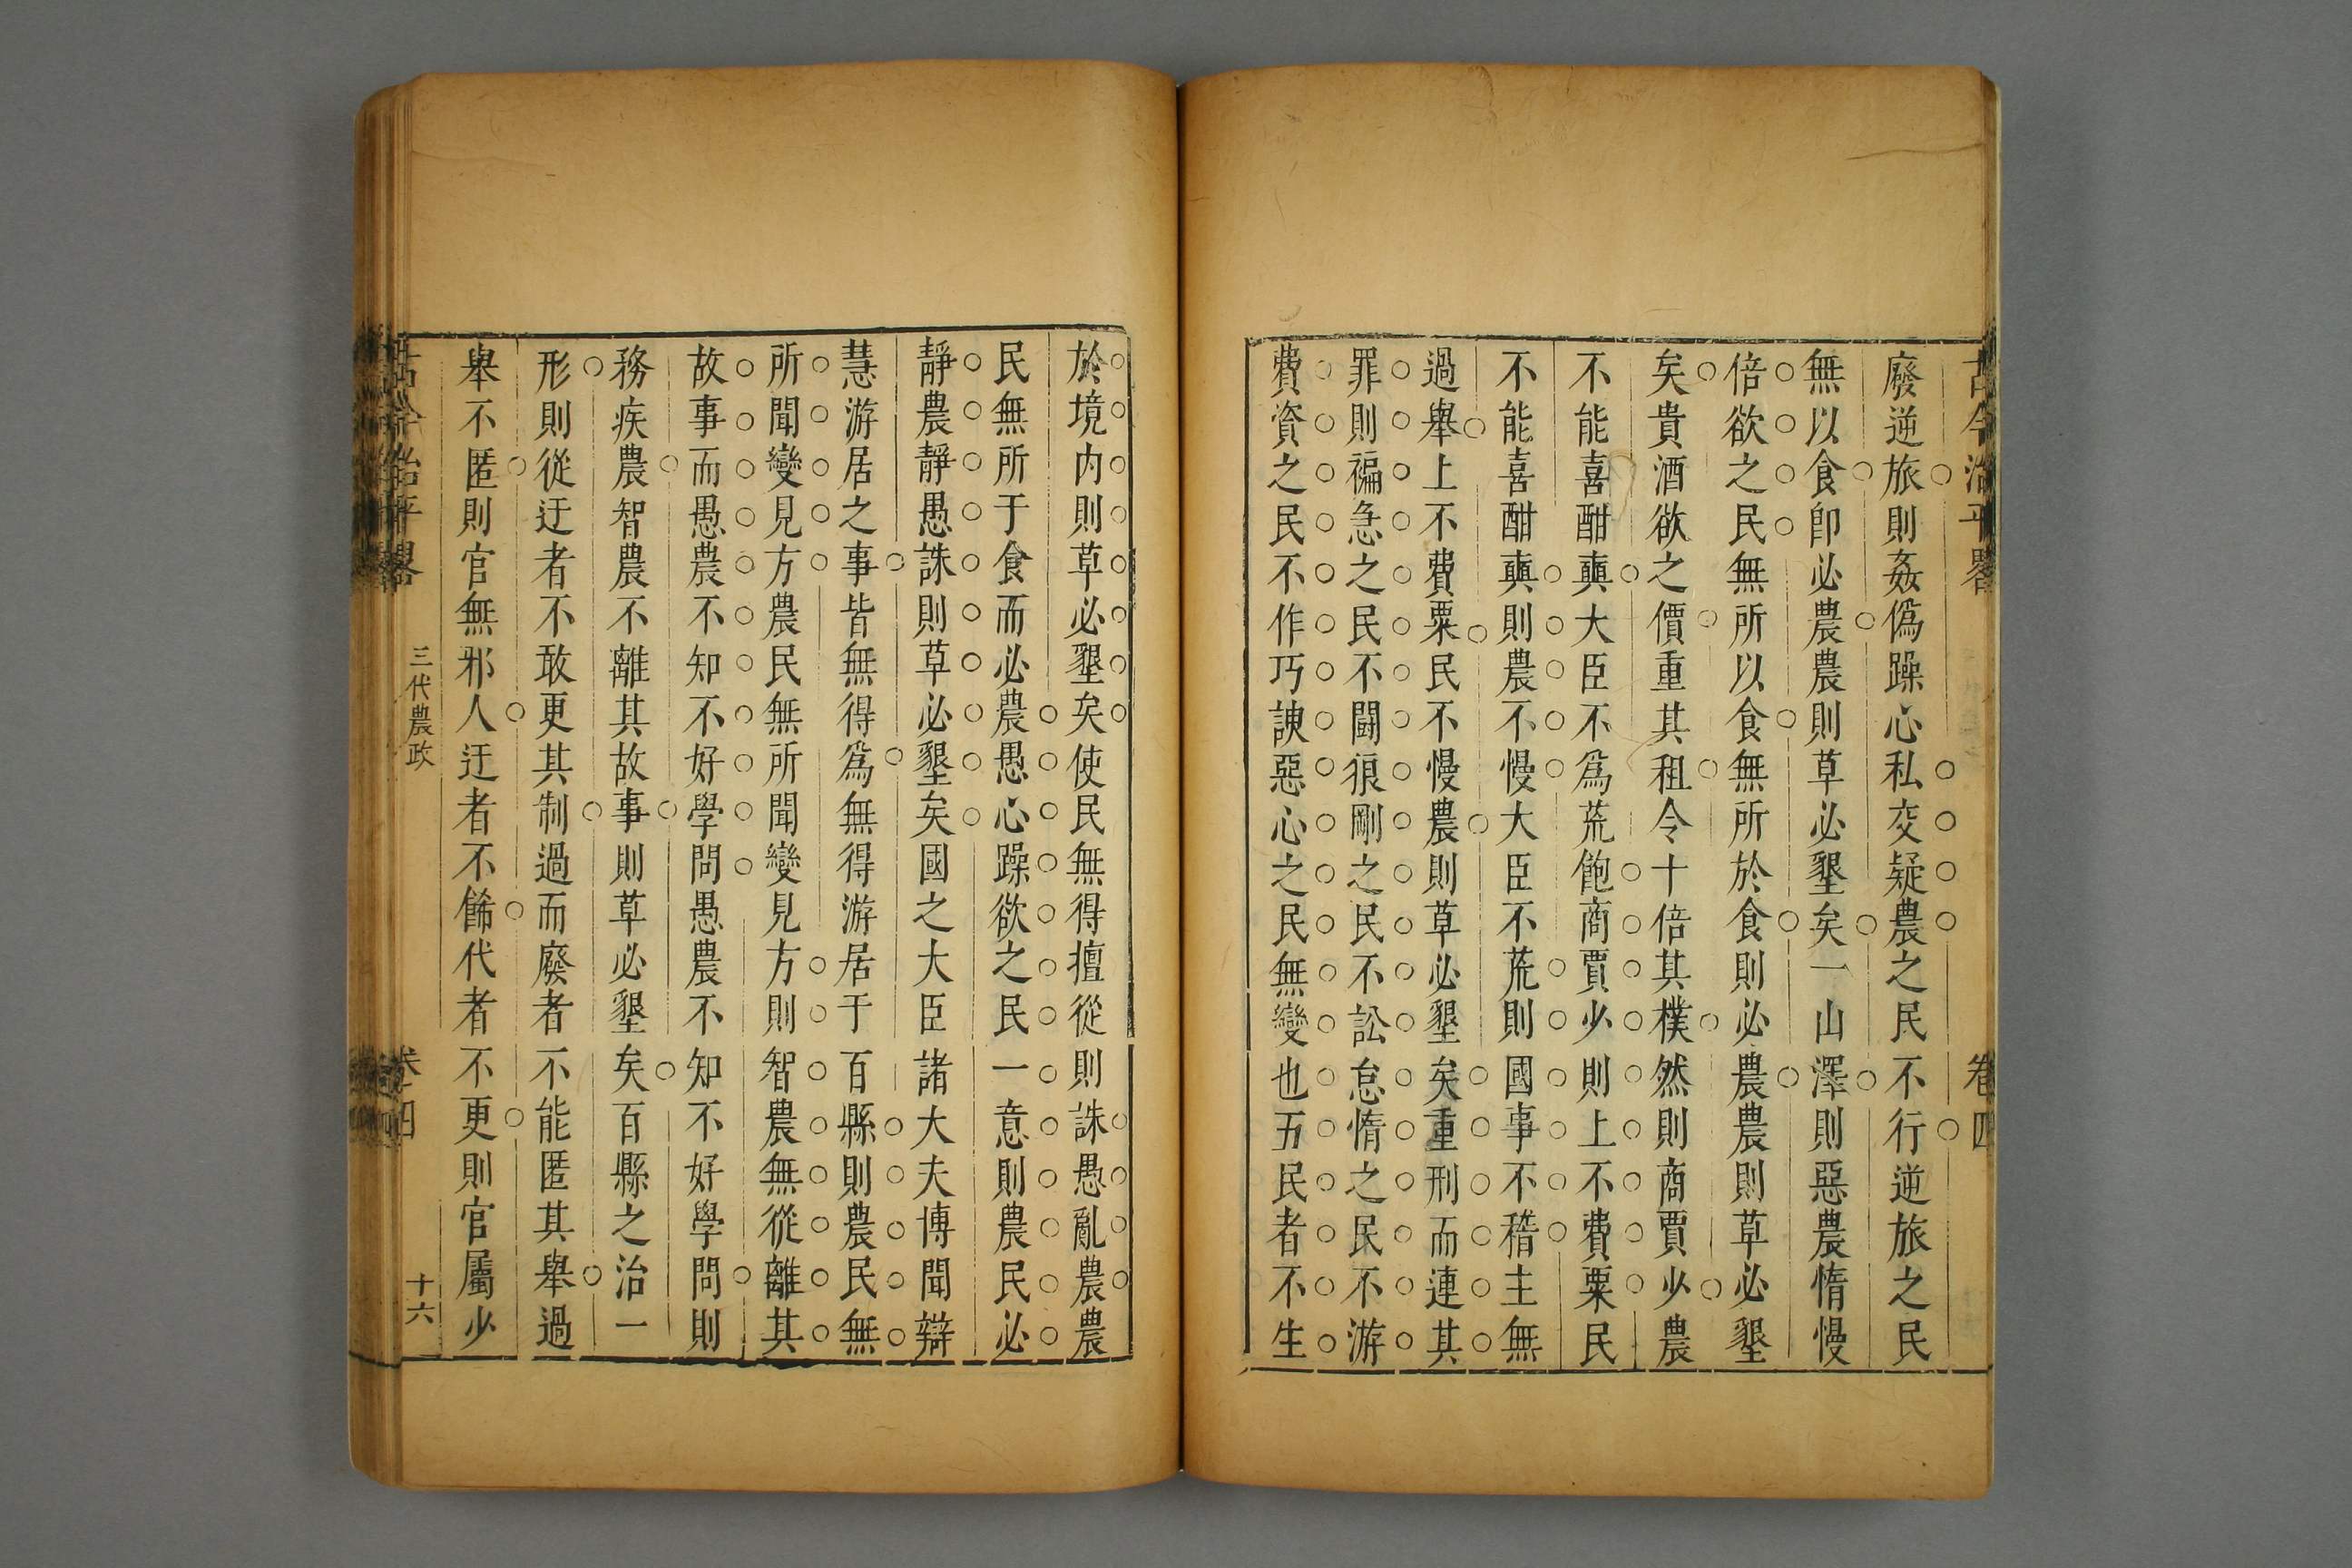 古今治平畧　卷四
廢逆旅則姦僞躁心私交疑農之民不行逆旅之民
無以食卽必農農則草必墾矣一山澤則惡農惰慢
倍欲之民無所以食無所於食則必農農則草必墾
矣貴酒欲之價重其租令十倍其樸然則商賈少農
不能喜酣奭大臣不爲荒飽商賈少則上不費粟民
不能喜酣奭則農不慢大臣不荒則國事不稽主無
過舉上不費粟民不慢農則草必墾矣重刑而連其
罪則褊急之民不鬪狠剛之民不訟怠惰之民不游
費資之民不作巧諛惡心之民無變也五民者不生
於境内則草必墾矣使民無得擅從則誅愚亂農農
民無所于食而必農愚心躁欲之民一意則農民必
靜農靜愚誅則草必墾矣國之大臣諸大夫博聞辯
慧游居之事皆無得爲無得游居于百縣則農民無
所聞變見方農民無所聞變見方則智農無從離其
故事而愚農不知不好學問愚農不知不好學問則
務疾農智農不離其故事則草必墾矣百縣之治一
形則從迂者不敢更其制過而廢者不能匿其舉過
舉不匿則官無邪人迂者不餙代者不更則官屬少
古今治平畧　三代農政　卷四　十六